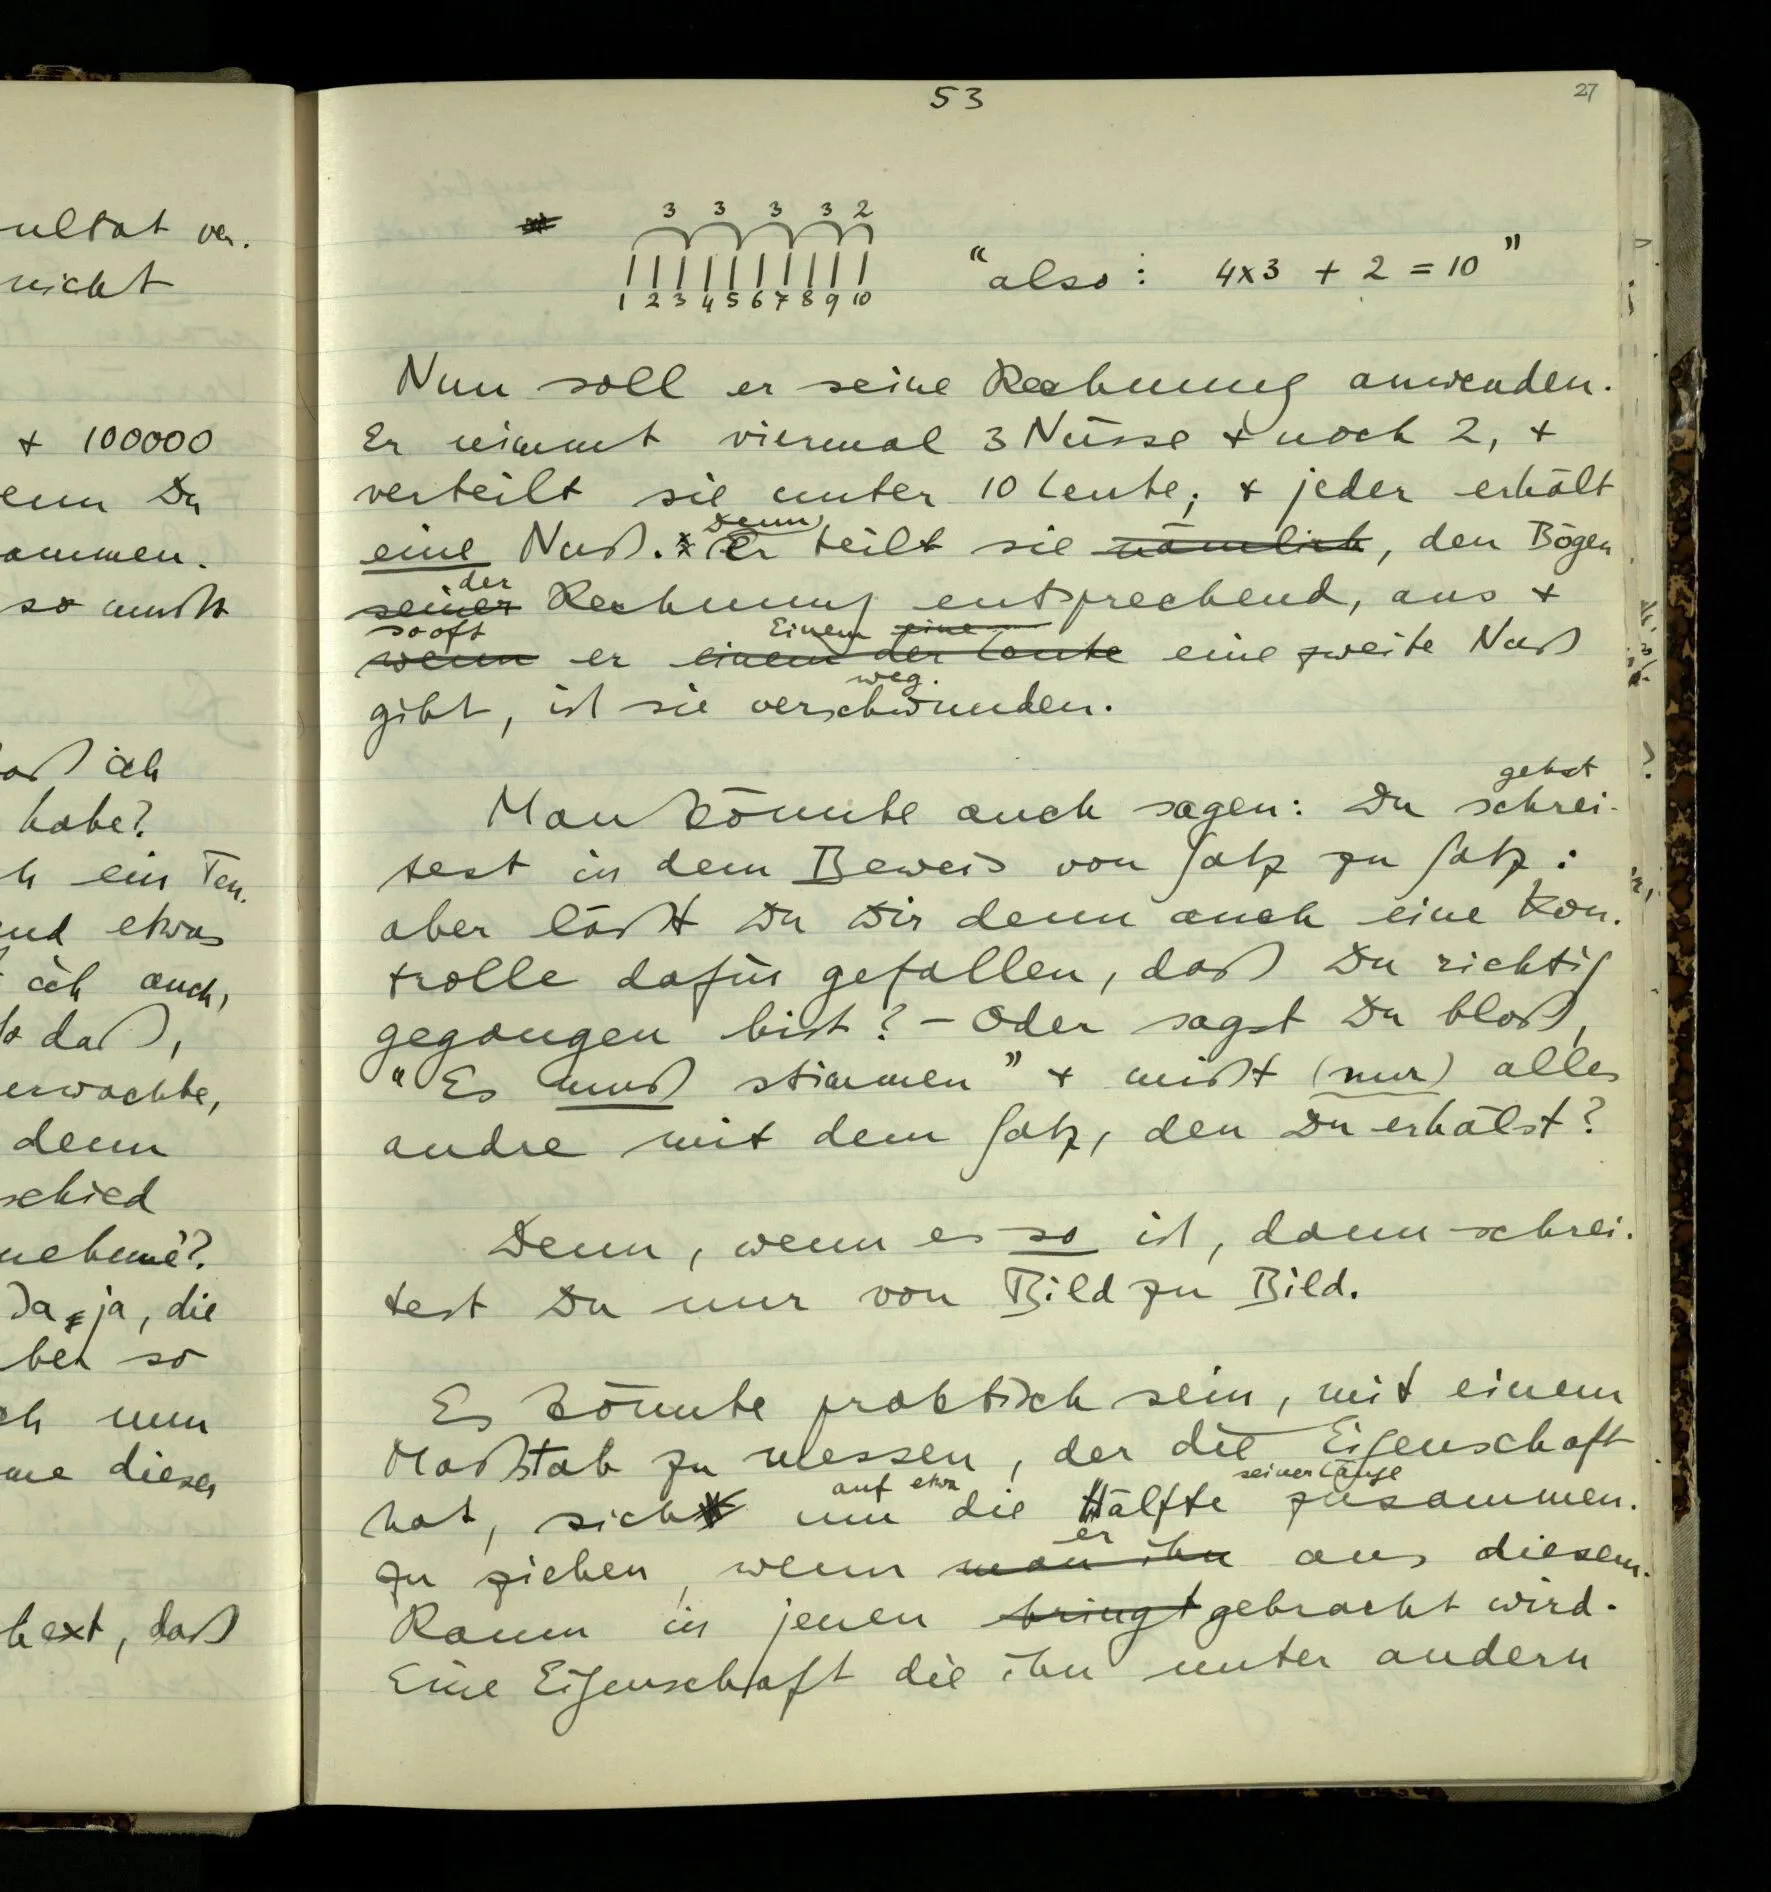 ultat ver-
nicht
+ 100000
enn Du
ammen.
so mußt
aß ich
habe?
h ein Ton
und etwas
ich auch,
daß,
erwachte,
denn
schied
nehme?
Ja, ja, die
ber so
ch nun
me dieses
hext, daß
53
27
3 3 3 3 2
1 2 3 4 5 6 7 8 9 10
“also: 4x3 + 2 = 10”
Nun soll er seine Rechnung anwenden.
Er nimmt viermal 3 Nüsse + noch 2, +
verteilt sie unter 10 Leute; + jeder erhält
Denn
eine Nuß. Er teilt sie nämlich, den Bögen
der
seiner Rechnung entsprechend, aus +
so oft Einem eine
wenn er einem der Leute eine zweite Nuß
weg.
gibt, ist sie verschwunden.
gehst
Man könnte auch sagen: Du schrei-
test in dem Beweis von Satz zu Satz:
aber läßt Du Dir denn auch eine Kon-
trolle dafür gefallen, daß Du richtig
gegangen bist? – Oder sagst Du bloß,
“Es muß stimmen” + mißt (nur) alles
andre mit dem Satz, den Du erhälst?
Denn, wenn es so ist, dann schrei-
test Du nur von Bild zu Bild.
Es könnte praktisch sein, mit einem
Maßstab zu messen, der die Eigenschaft
auf etwa seiner Länge
hat, sich um die Hälfte zusammen-
er
zu ziehen, wenn man ihn aus diesem
Raum in jenen bringt gebracht wird.
Eine Eigenschaft die ihn unter andern